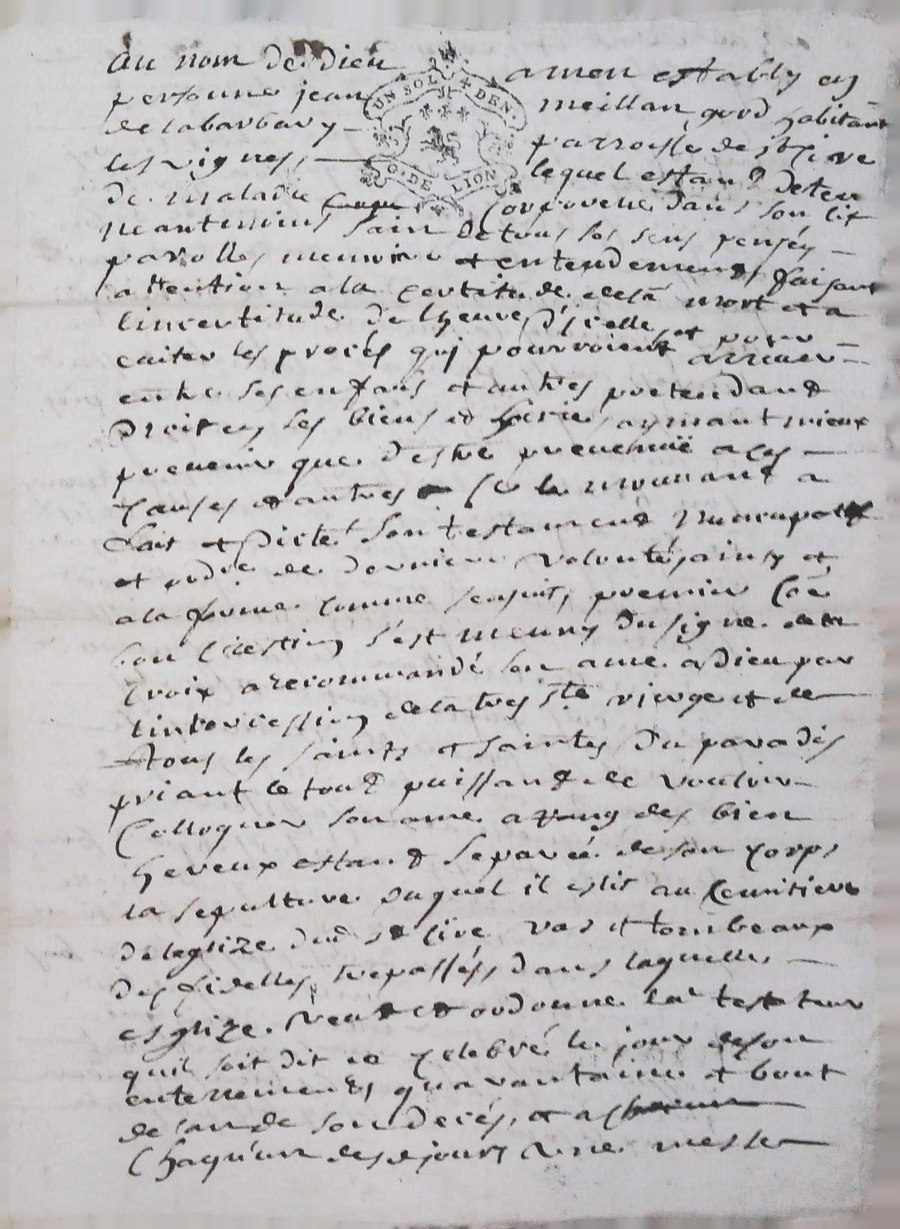 Au nom de Dieu amen estably en
UN SOL 4 DEN.
G. DE LION
personne jean meillan gord habitant
de labarbary parroisse de st Cire
les vignes, lequel estant detenu
de maladie corporelle dans son lit
neantmoins sain de tous ses sens pensées
parolles memoire et entendement, faisant
attention a la certitude de sa mort et a
lincertitude de lheure d'icelle, et pour
eviter les procès qui pourroient arriver
entre ses enfans et autres pretendant
droit en ses biens et hoirie, aymant mieux
prevenir que destre prevenu a ces
causes et autres le mouvant a
fait et dicté son testament nuncupatif
et ordce de derniere volonté ainsy et
a la forme comme sensuit, premier Côe
bon Crestien s'est meuny du signe de la
Croix a recommandé son ame a Dieu par
lintercession de la tres Ste vierge et de
tous les saints et saintes du paradis
priant le tout puissant de vouloir
Colloquer son ame a rang des bien
heureux estant separée de son corps
la sepulture duquel il eslit au Cemitiere
de leglize dud st Cire vas et tombeaux
des fidelles trepassés, dans laquelle
esglize veut et ordonne led testateur
quil soit dit et celebré le jour de son
enterrement quarantaine et bout
de lan de son decés, et a
Chaqu'un desd jours une messe